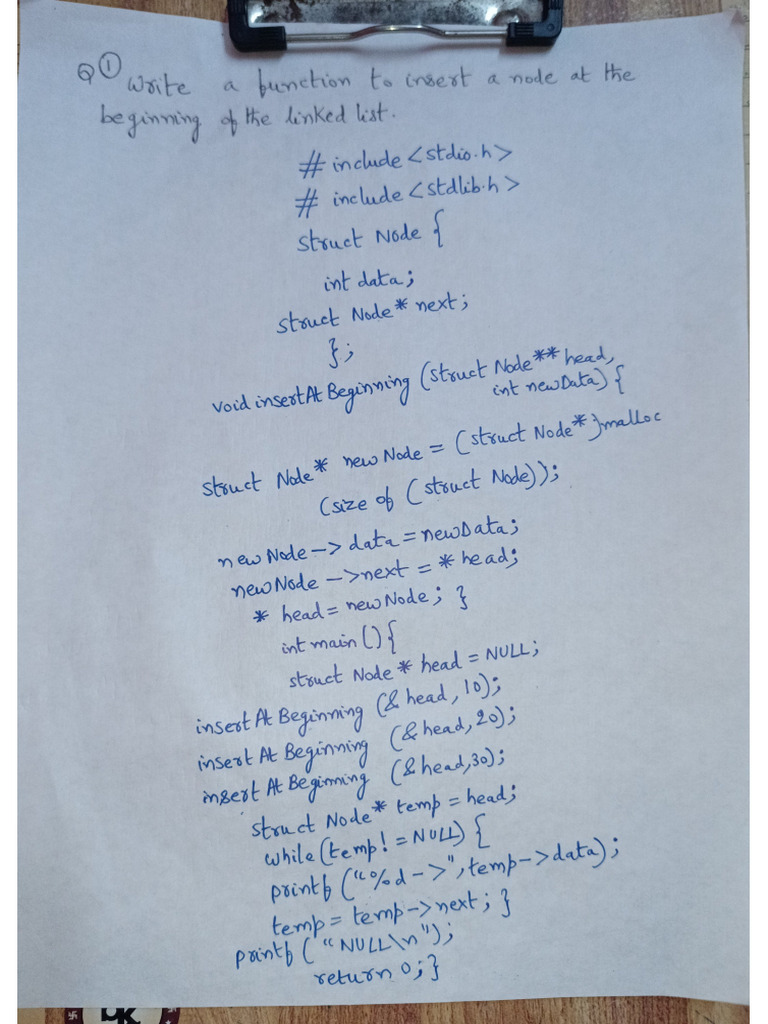 Q ① Write a function to insert a node at the
beginning of the linked list.
# include <stdio.h>
# include <stdlib.h>
struct Node {
int data;
struct Node* next;
};
void insertAtBeginning (struct Node** head,
int newData) {
struct Node* newNode = (struct Node*)malloc
(size of (struct Node));
newNode -> data = newData;
newNode -> next = * head;
* head = newNode; }
int main () {
struct Node* head = NULL;
insertAtBeginning (& head, 10);
insertAtBeginning (& head, 20);
insertAtBeginning (& head, 30);
struct Node* temp = head;
while (temp != NULL) {
printf ("%d ->", temp -> data);
temp = temp -> next; }
printf ("NULL\n");
return 0; }